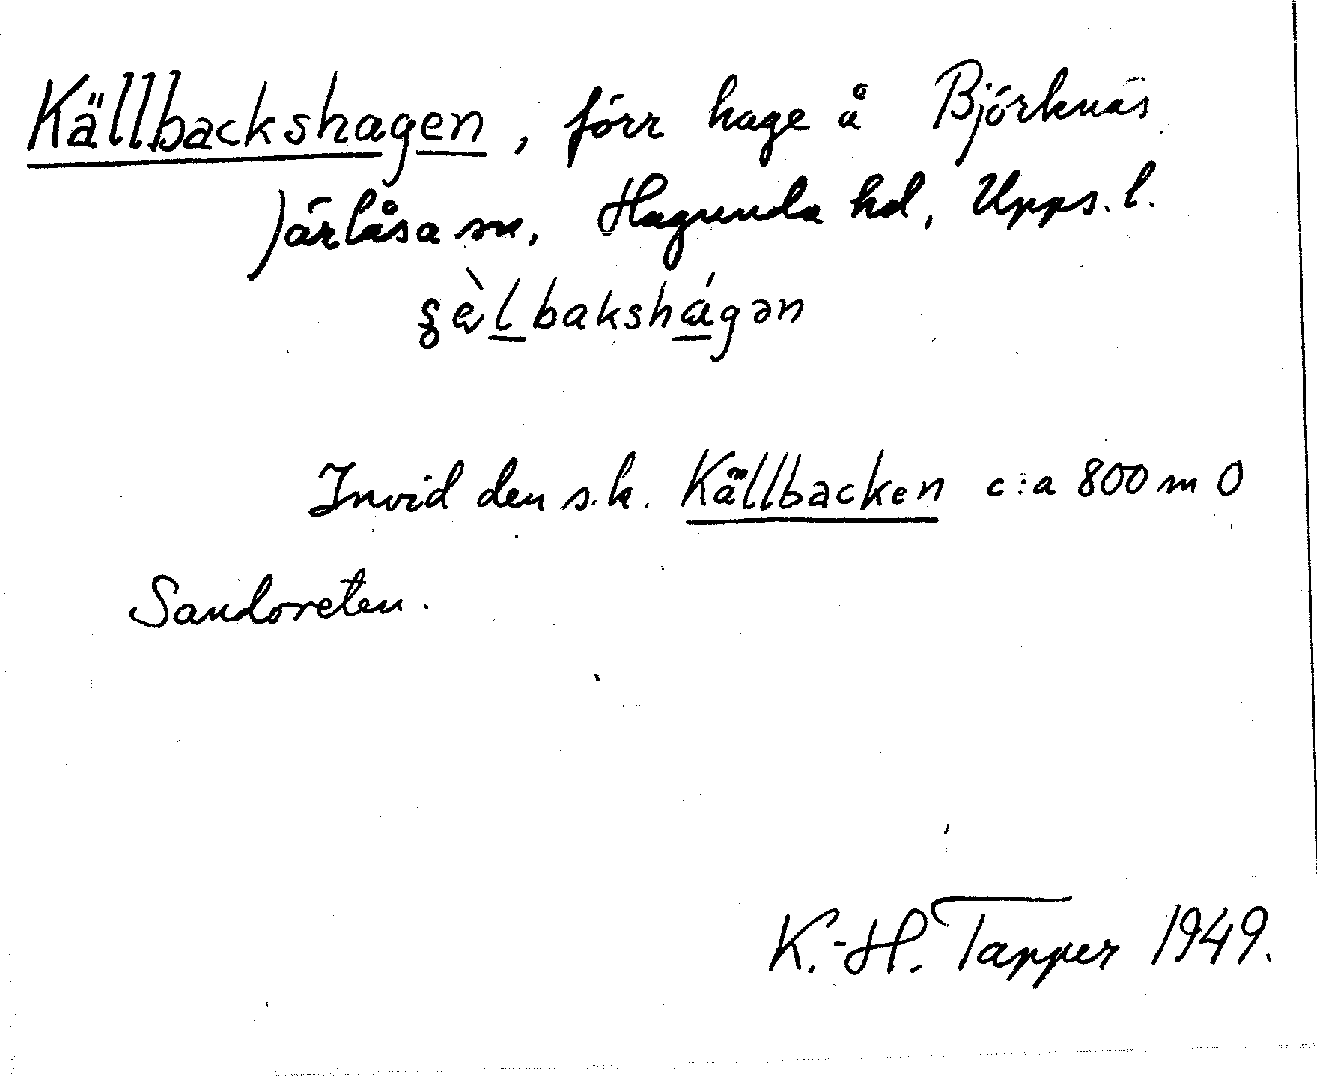 Källbackshagen, förr hage å Björknäs
Järlåsa sn, Hagunda hd, Upps. l.
Invid den s.k. Källbacken c:a 800 m O
Sandoreten.
K.-H. Tapper 1949.